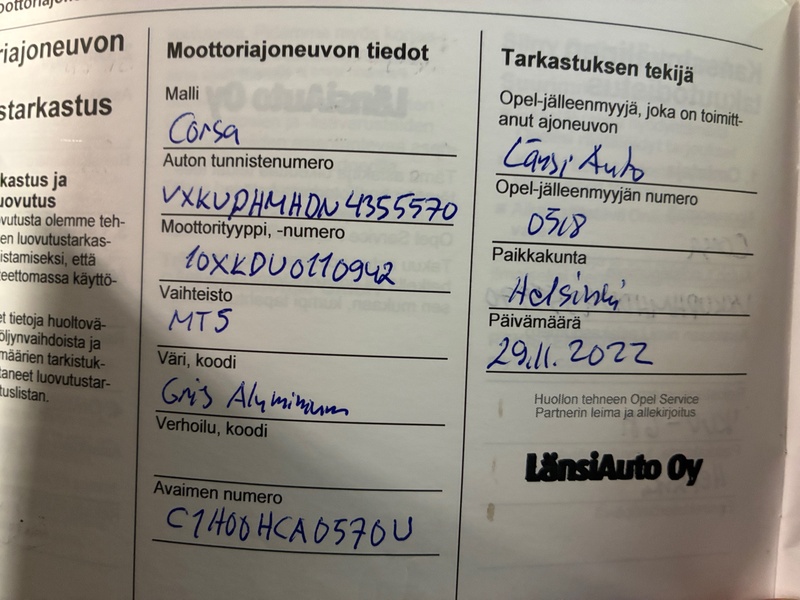 iajoneuvon
starkastus
kastus ja
uovutus
vutusta olemme teh-
en luovutustarkas-
istamiseksi, että
eettomassa käyttö-
et tietoja huoltovä-
öljynvaihdoista ja
määrien tarkistuk-
taneet luovutustar-
tuslistan.
Moottoriajoneuvon tiedot
Malli
Corsa
Auton tunnistenumero
VXKUPHMHDN4355570
Moottorityyppi, -numero
10XKDU0110942
Vaihteisto
MT5
Väri, koodi
Gris Aluminum
Verhoilu, koodi
Avaimen numero
C1H00HCA0570U
Tarkastuksen tekijä
Opel-jälleenmyyjä, joka on toimitt-
anut ajoneuvon
Länsi Auto
Opel-jälleenmyyjän numero
0518
Paikkakunta
Helsinki
Päivämäärä
29.11.2022
Huollon tehneen Opel Service
Partnerin leima ja allekirjoitus
LänsiAuto Oy